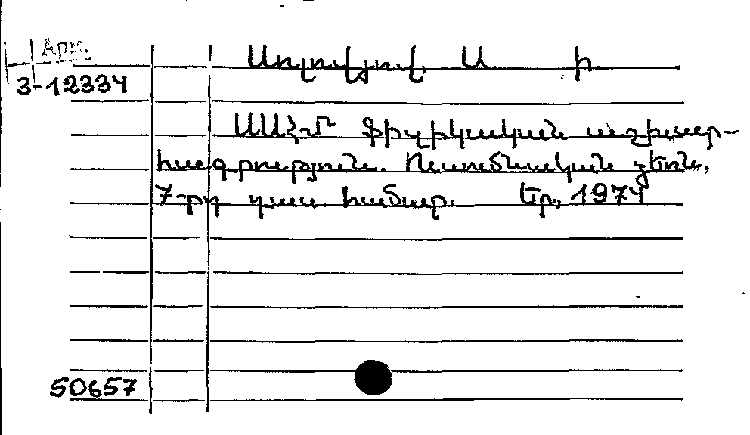 Արմ.
3-12334
Սոլովյով Ա ի
ՍՍՀՄ ֆիզիկական աշխար-
հագրություն. Ուսումնական ձեռն.
7-րդ դաս. համար. Եր., 1974
50657